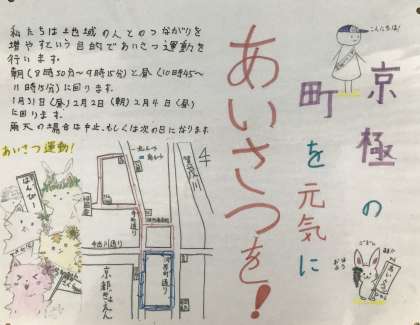 京極の
町を元気に
あいさつを!
私たちは地域の人とのつながりを
増やすという目的であいさつ運動を
行います。
朝(8時50分〜9時15分)と昼(10時45〜
11時15分)に回ります。
1月31日(昼)2月2日(朝)2月4日(昼)
に回ります。
雨天の場合は中止、もしくは次の日になります。
あいさつ運動!
こんにちは!
賀茂川
今出川通り
寺町通り
京都ぎょえん